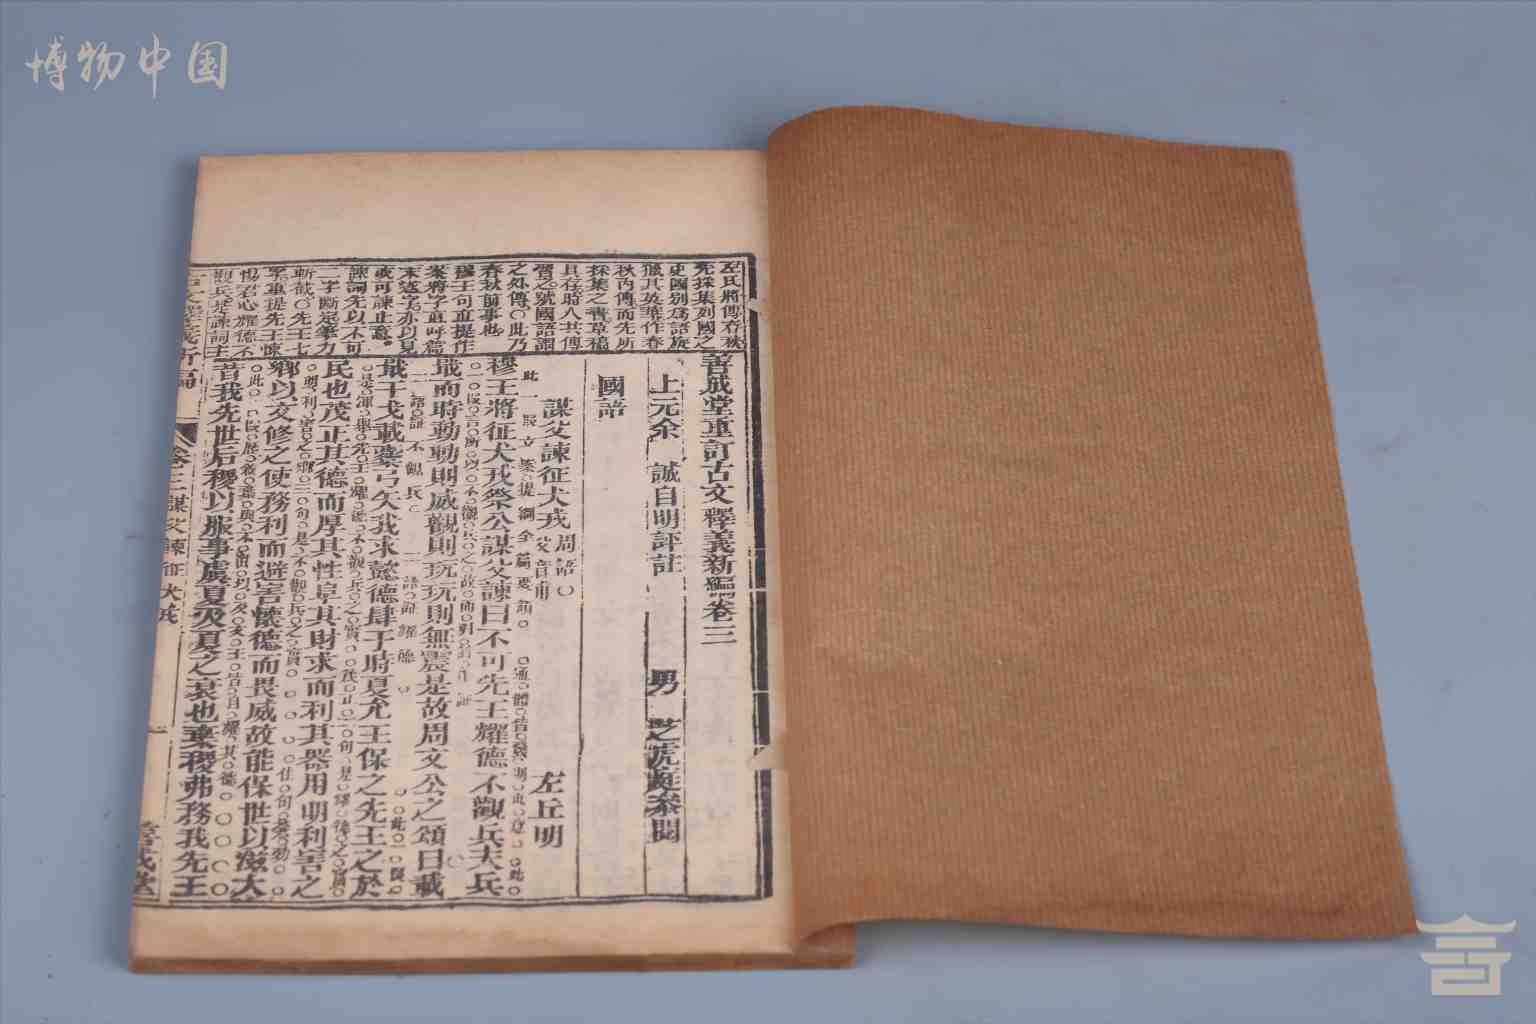 博物中国
左氏將傳春秋
先採集列國之
史國別爲語旋
獵其英華作春
秋內傳而先所
採集之書草稿
具存時人共傳
習之號國語謂
之外傳○此乃
春秋前事也
穆王句直提作
案將字直呼篇
末遂字亦以見
或可諫止意
諫詞先以不可
二字斷定筆力
斬截○先王七
字重提先王懷
德
觀兵是諫詞主
善成堂重訂古文釋義新編卷三
上元余 誠自明評註 男 芝虎庭叅閱
國語
謀父諫征犬戎 周語○ 父音甫 左丘明
此一段文案提綱全篇要領○
穆王將征犬戎祭公謀父諫曰不可先王耀德不觀兵夫兵
戢而時動動則威觀則玩玩則無震是故周文公之頌曰載
戢干戈載櫜弓矢我求懿德肆于時夏允王保之先王之於
民也茂正其德而厚其性阜其財求而利其器用明利害之
鄉以文修之使務利而避害懷德而畏威故能保世以滋大
昔我先世后稷以服事虞夏及夏之衰也棄稷弗務我先王
卷三 謀父諫征犬戎 一 善成堂